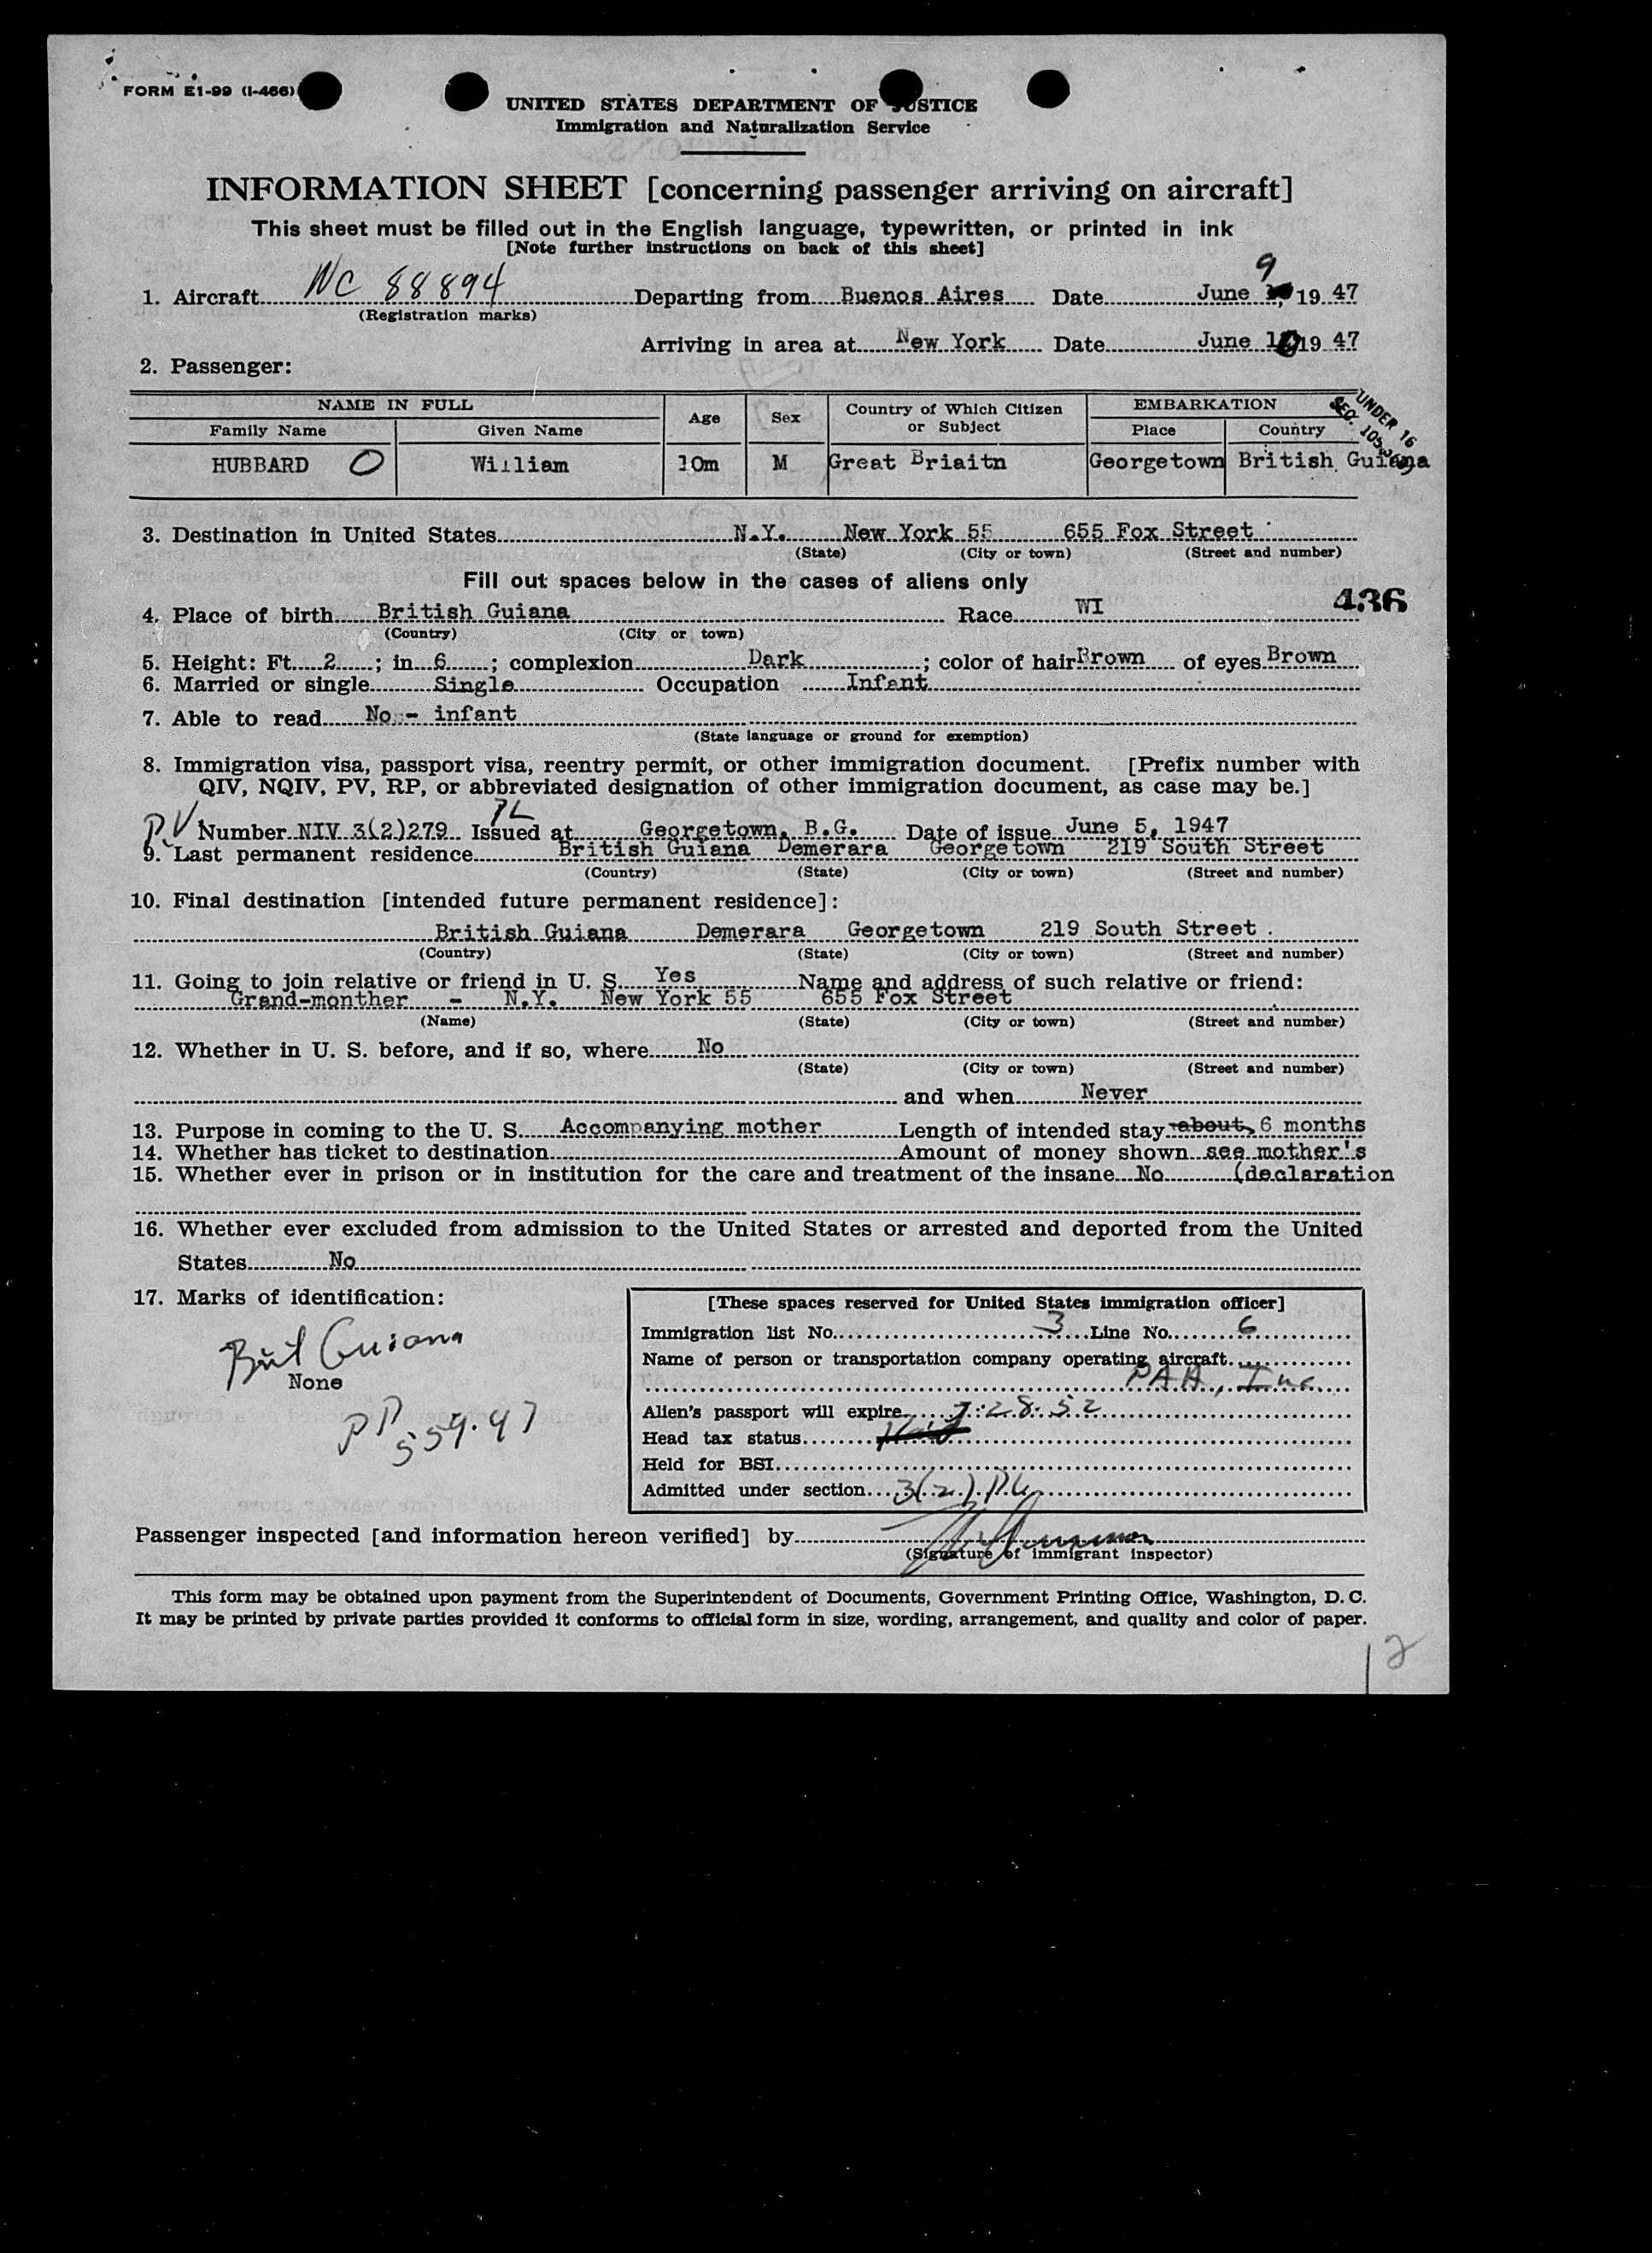 FORM E1-99 (I-466)
UNITED STATES DEPARTMENT OF JUSTICE
Immigration and Naturalization Service
INFORMATION SHEET [concerning passenger arriving on aircraft]
This sheet must be filled out in the English language, typewritten, or printed in ink
[Note further instructions on back of this sheet]
9
1. Aircraft NC 88894 Departing from Buenos Aires Date June , 19 47
(Registration marks)
Arriving in area at New York Date June 10 19 47
2. Passenger:
NAME IN FULL Age Sex Country of Which Citizen or Subject EMBARKATION
UNDER 16
SEC. 105
Family Name Given Name Place Country
HUBBARD O William 10m M Great Briaitn Georgetown British Guiana
3. Destination in United States N.Y. New York 55 655 Fox Street
(State) (City or town) (Street and number)
Fill out spaces below in the cases of aliens only
436
4. Place of birth British Guiana Race WI
(Country) (City or town)
5. Height: Ft. 2 ; in 6 ; complexion Dark ; color of hair Brown of eyes Brown
6. Married or single Single Occupation Infant
7. Able to read No - infant
(State language or ground for exemption)
8. Immigration visa, passport visa, reentry permit, or other immigration document. [Prefix number with
QIV, NQIV, PV, RP, or abbreviated designation of other immigration document, as case may be.]
PL
PV Number NIV 3(2)279 Issued at Georgetown, B.G. Date of issue June 5, 1947
9. Last permanent residence British Guiana Demerara Georgetown 219 South Street
(Country) (State) (City or town) (Street and number)
10. Final destination [intended future permanent residence]:
British Guiana Demerara Georgetown 219 South Street .
(Country) (State) (City or town) (Street and number)
11. Going to join relative or friend in U. S. Yes Name and address of such relative or friend:
Grand-monther - N.Y. New York 55 655 Fox Street
(Name) (State) (City or town) (Street and number)
12. Whether in U. S. before, and if so, where No
(State) (City or town) (Street and number)
and when Never
13. Purpose in coming to the U. S. Accompanying mother Length of intended stay about 6 months
14. Whether has ticket to destination Amount of money shown see mother's
15. Whether ever in prison or in institution for the care and treatment of the insane No (declaration
16. Whether ever excluded from admission to the United States or arrested and deported from the United
States No
17. Marks of identification:
Brit Guiana
None
PP 559.47
[These spaces reserved for United States immigration officer]
Immigration list No. 3 Line No. 6
Name of person or transportation company operating aircraft
PAA, Inc
Alien's passport will expire 7.28.52
Head tax status
Held for BSI
Admitted under section 3(2) PL
Passenger inspected [and information hereon verified] by
(Signature of immigrant inspector)
This form may be obtained upon payment from the Superintendent of Documents, Government Printing Office, Washington, D. C.
It may be printed by private parties provided it conforms to official form in size, wording, arrangement, and quality and color of paper.
12